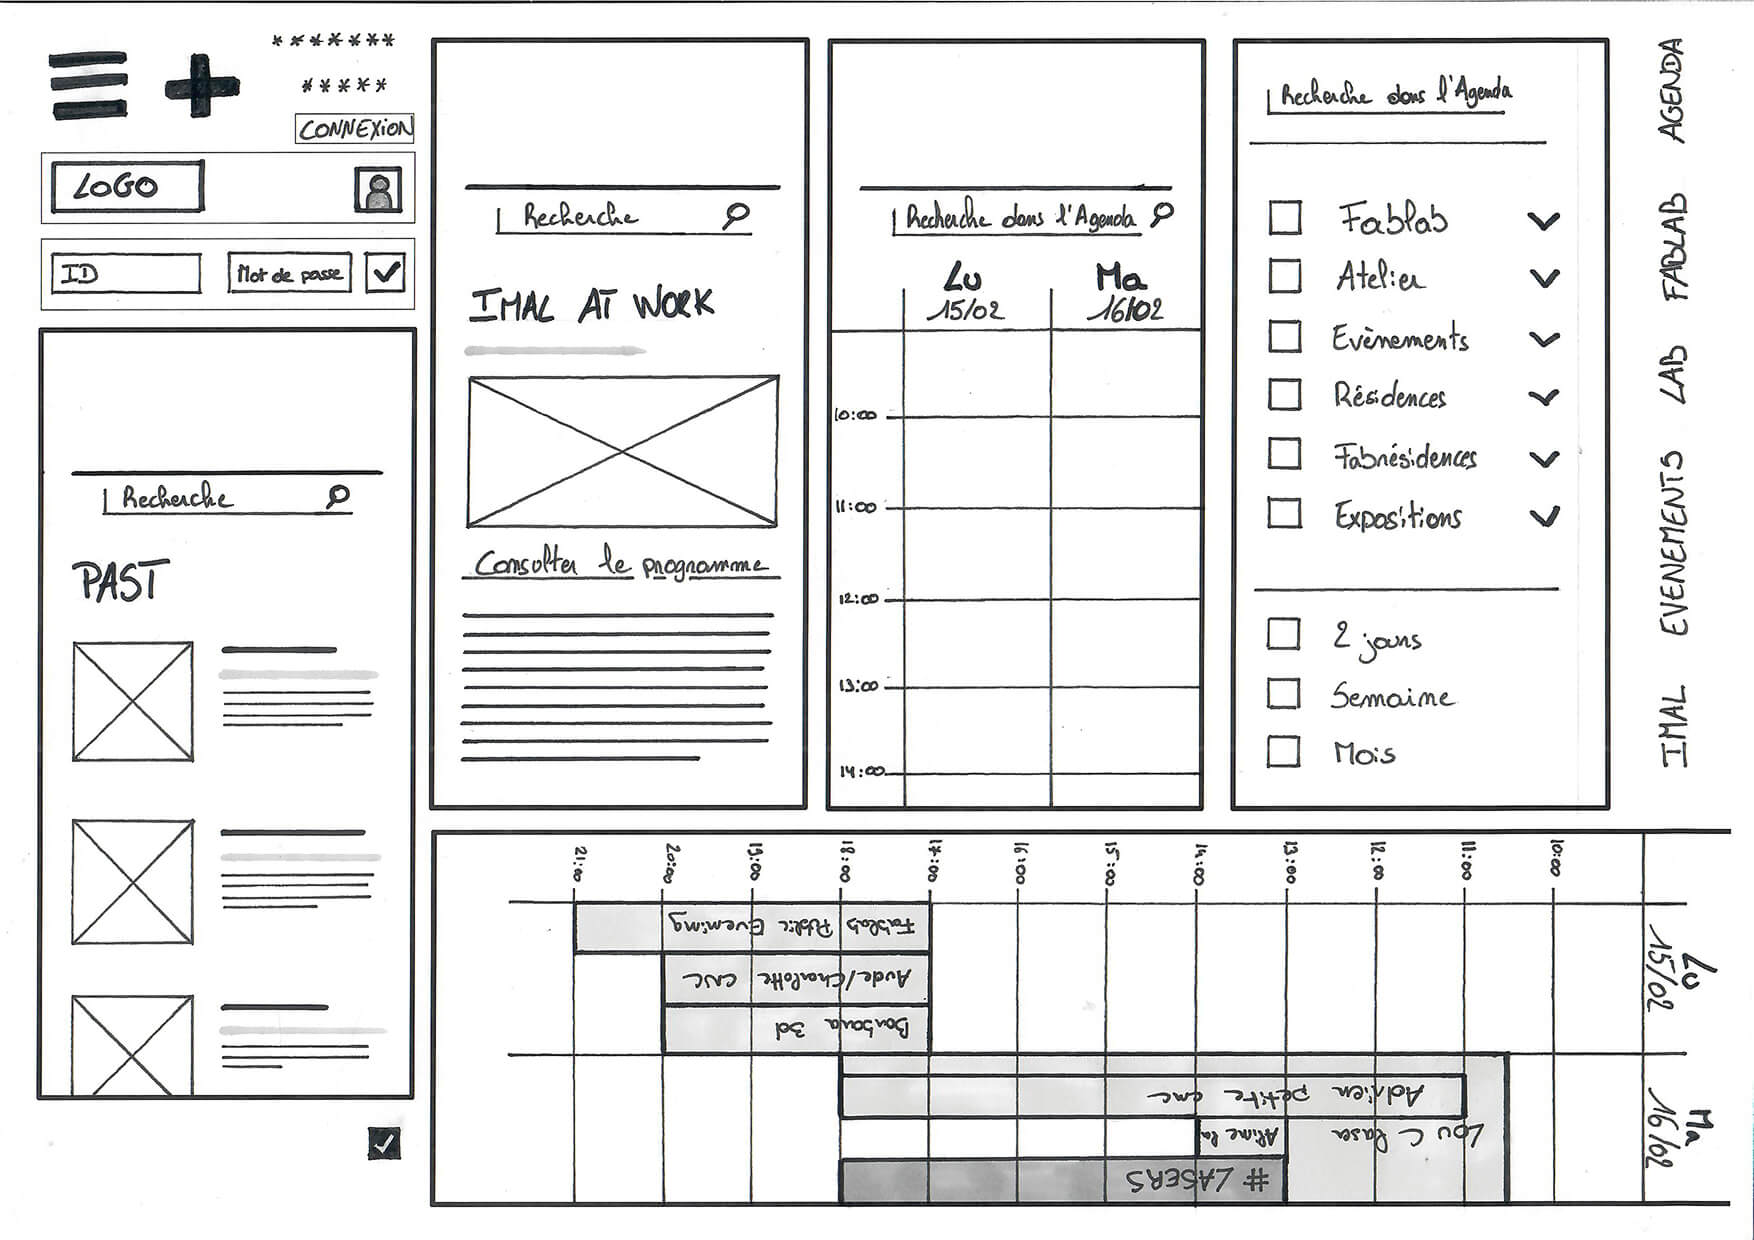 *******
*****
CONNEXION
LOGO
ID
Mot de passe
Recherche
PAST
Recherche
IMAL AT WORK
Consulter le programme
Recherche dans l'Agenda
Lu
15/02
Ma
16/02
10:00
11:00
12:00
13:00
14:00
Recherche dans l'Agenda
Fablab
Atelier
Evènements
Résidences
Fabrésidences
Expositions
2 jours
Semaine
Mois
AGENDA
FABLAB
LAB
EVENEMENTS
IMAL
21:00
20:00
19:00
18:00
17:00
16:00
15:00
14:00
13:00
12:00
11:00
10:00
Lu
15/02
Fablab Public Evening
Aude/Charlotte CNC
Barbara 3d
Ma
16/02
Adrien petite cnc
Lou C laser
Aline la
# LASERS